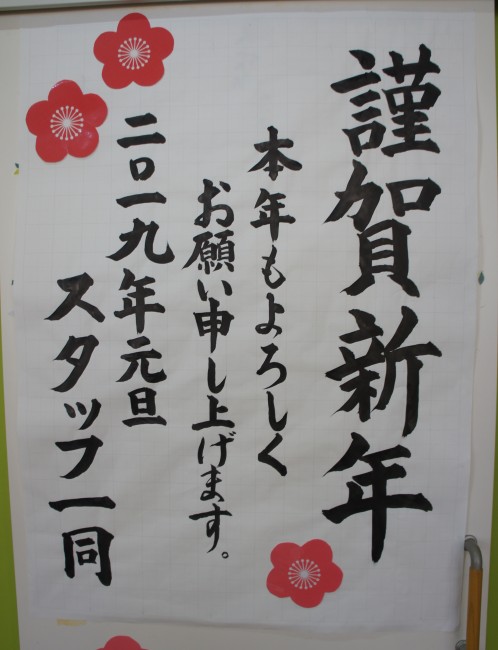 謹賀新年
本年もよろしく
お願い申し上げます。
二〇一九年元旦
スタッフ一同